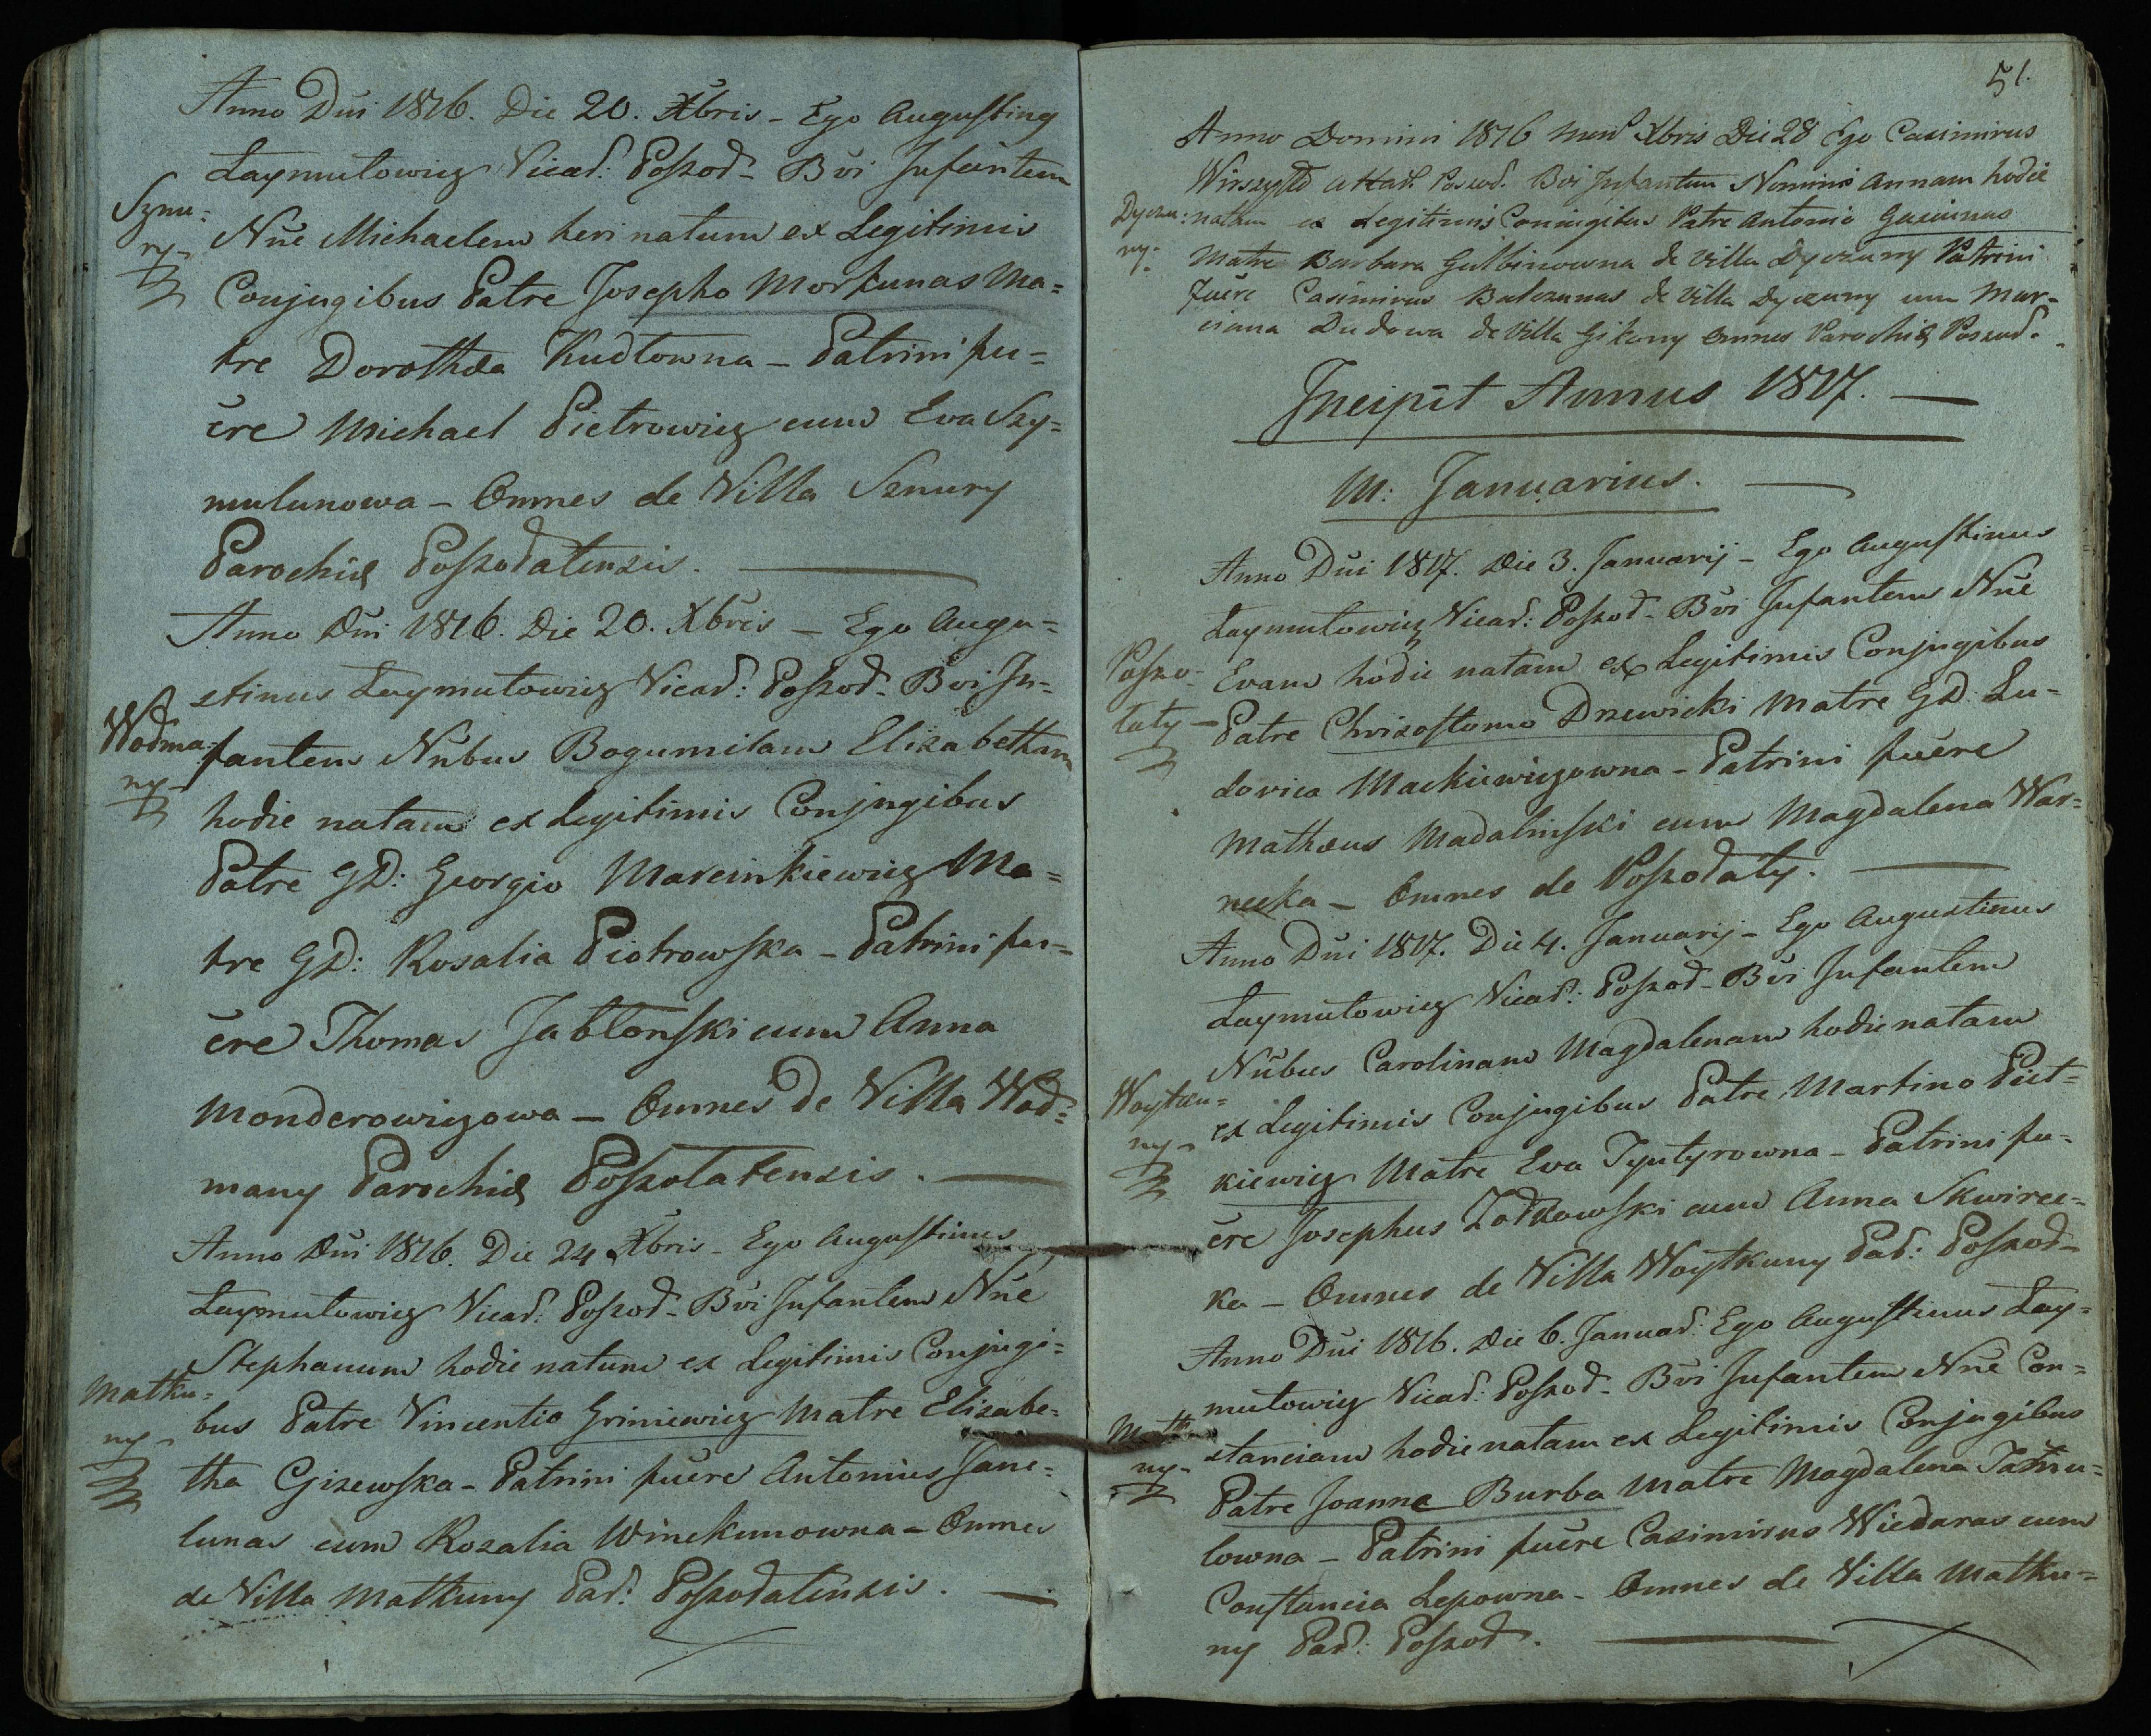 Anno Dñi 1816. Die 20. Xbris - Ego Augustinꝯ
Laymutowicz Vicar: Poszod- Bvi Infantem
Sznu-
ry-
Nñe Michaelem heri natum ex Legitimis
Conjugibus Patre Josepho Morkunas Ma=
tre Dorothæa Kudtowna - Patrini fu=
ere Michael Pietrowicz cum Eva Szy=
mulunowa - Omnes de Villa Sznury
Parochiæ Poszodatensis.
Anno Dñi 1816. Die 20. Xbris - Ego Augu=
stinus Laymutowicz Vicar: Poszod- Bvi In=
Wodma-
ny-
fantem Nñbus Bogumilam Elizabetham
hodie natam ex Legitimis Conjugibus
Patre GD: Georgio Marcinkiewicz Ma=
tre GD: Rosalia Piotrowska - Patrini fu=
ere Thomas Jabłonski cum Anna
Monderowiczowa - Omnes de Villa Wod=
many Parochiæ Poszolatensis.
Anno Dñi 1816. Die 24 Xbris - Ego Augustinus
Laymutowicz Vicar: Poszod- Bvi Infantem Nñe
Stephanum hodie natum ex Legitimis Conjugi=
Matku=
ny-
bus Patre Vincentio Griniewicz Matre Elizabe=
tha Gizewska - Patrini fuere Antonius Jane=
lunas cum Rozalia Winckunowna - Omnes
de Villa Matkuny Par: Poszodatensis.
51.
Anno Domini 1816 Mens Xbris Die 28 Ego Casimirus
Wirszyłło Poszod. Bvi Infantem Nominis Annam hodie
Dyczu:
ny:
natam ex Legitimis Coniugibus Patre Antonio Gasiunas
Matre Barbara Gulbinowna de Villa Dyczuny Patrini
fuere Casimirus Balczunas de Villa Dyczuny cum Mar-
ciana Dudowa de Villa Gikony Omnes Parochiæ Poszod.
Incipit Annus 1817.
M: Januarius.
Anno Dñi 1817. Die 3. Januarij - Ego Augustinus
Laymutowicz Vicar: Poszod- Bvi Infantem Nñe
Poszo-
łaty-
Evam hodie natam ex Legitimis Conjugibus
Patre Chrizostomo Drzewicki Matre GD: Lu-
dovica Mackiewiczowna - Patrini fuere
Mathæus Madalinski cum Magdalena War=
necka - Omnes de Poszodaty.
Anno Dñi 1817. Die 4. Januarij - Ego Augustinus
Laymutowicz Vicar: Poszod- Bvi Infantem
Nñbus Carolinam Magdalenam hodie natam
Woytku=
ny-
ex Legitimis Conjugibus Patre Martino Piet=
kiewicz Matre Eva Tyutyrowna - Patrini fu=
ere Josephus Zołkowski cum Anna Skwirec=
ka - Omnes de Villa Woytkuny Par: Poszod-
Anno Dñi 1816. Die 6. Januar: Ego Augustinus Lay=
mutowicz Vicar: Poszod- Bvi Infantem Nñe Con=
Matku
ny-
stanciam hodie natam ex Legitimis Conjugibus
Patre Joanne Burba Matre Magdalena
lowna - Patrini fuere Casimirus Wiedaras cum
Constancia Lepowna - Omnes de Villa Matku=
ny Par: Poszod.